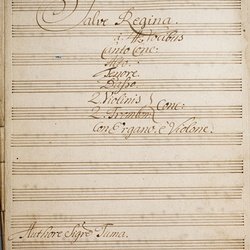 Salve Regina.
a 4 Vocibus
Canto Conc:
Alto.
Tenore.
Basso.
2. Violinis
2. Tromboni Conc:
con Organo, è Violone.
Authore Sigre Tuma.